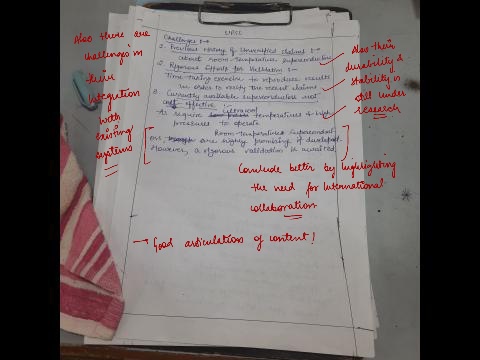 UPSC
Challenges :-
1. Previous History of Unverified claims :-
about room-Temperature Superconductor
2. Rigorous Efforts for Validation :-
Time taking exercise to reproduce results
in order to verify the recent claims
3. Currently available superconductors not
cost effective :-
As require temperatures & high
pressures to operate
Room-Temperatures Superconduct-
ors are highly promising
However, a rigorous validation is awaited
Also there are
challenges in
their
integration
with
existing
systems
Also their
durability &
stability is
still under
research
Conclude better by highlighting
the need for International
collaboration
→ Good articulation of content!